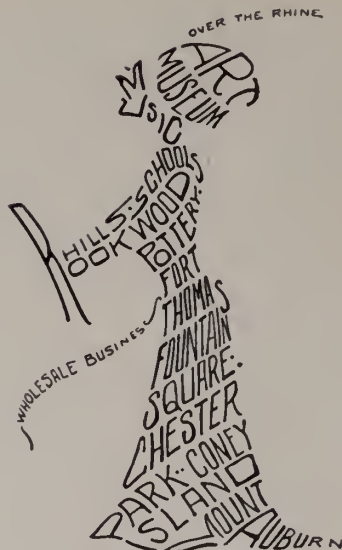 OVER THE RHINE
ART
MUSEUM
MUSIC
SCHOOLS
HILLS:
ROOKWOOD
POTTERY.
FORT
THOMAS
WHOLESALE BUSINES
FOUNTAIN
SQUARE.
CHESTER
PARK. CONEY
ISLAND
MOUNT
AUBURN